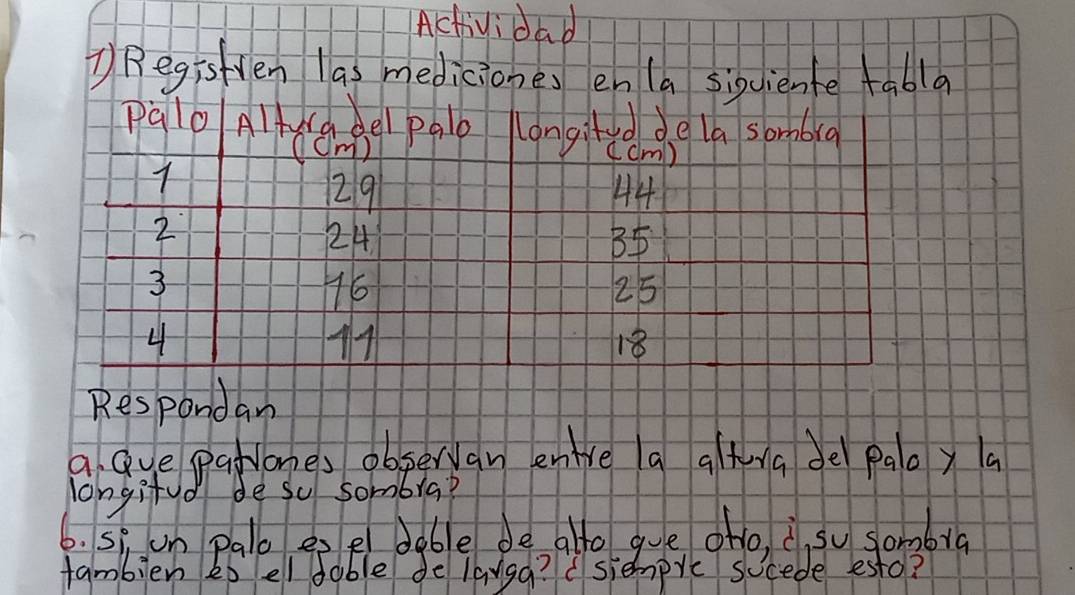 Actividad
1) Registren las mediciones en la siguiente tabla
Palo Altura del palo longitud de la sombra
(cm) (cm)
1 29 44
2 24 35
3 16 25
4 11 18
Respondan
a. Que patrones observan entre la altura del palo y la
longitud de su sombra?
b. Si, un palo es el doble de alto que otro, ¿su sombra
tambien es el doble de larga? ¿siempre sucede esto?